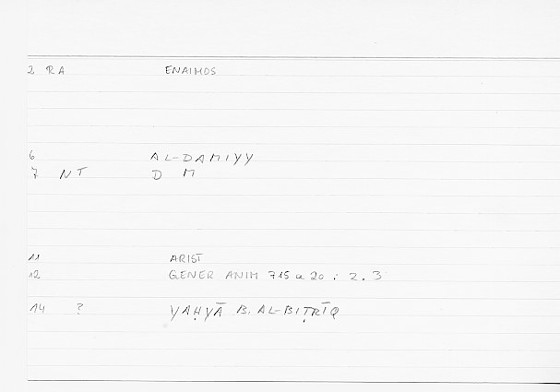 2 RA ENAIMOS
6 AL-DAMIYY
7 NT D M
11 ARIST
12 GENER ANIM 715 a 20 : 2.3
14 ? YAḤYĀ B. AL-BIṬRĪQ